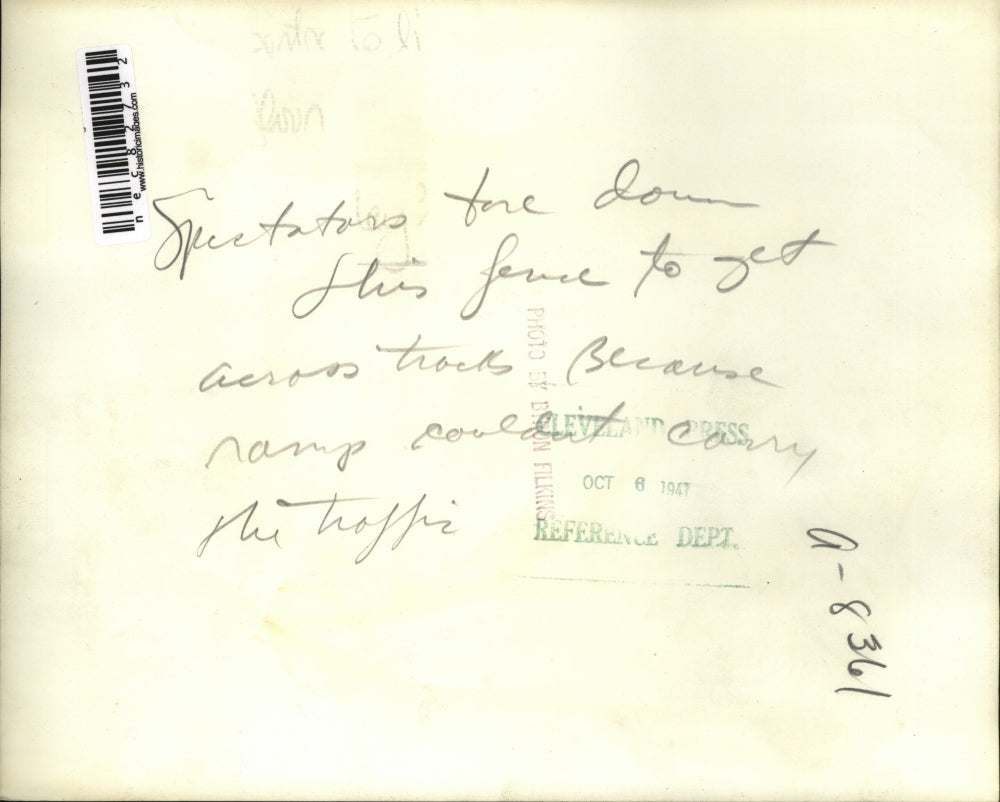 Spectators tore down
this fence to get
across tracks Because
ramp couldn't carry
the traffic
PHOTO BY BYRON FILKINS
CLEVELAND PRESS
OCT 6 1947
REFERENCE DEPT.
a-8361
nec82732
www.historicimages.com